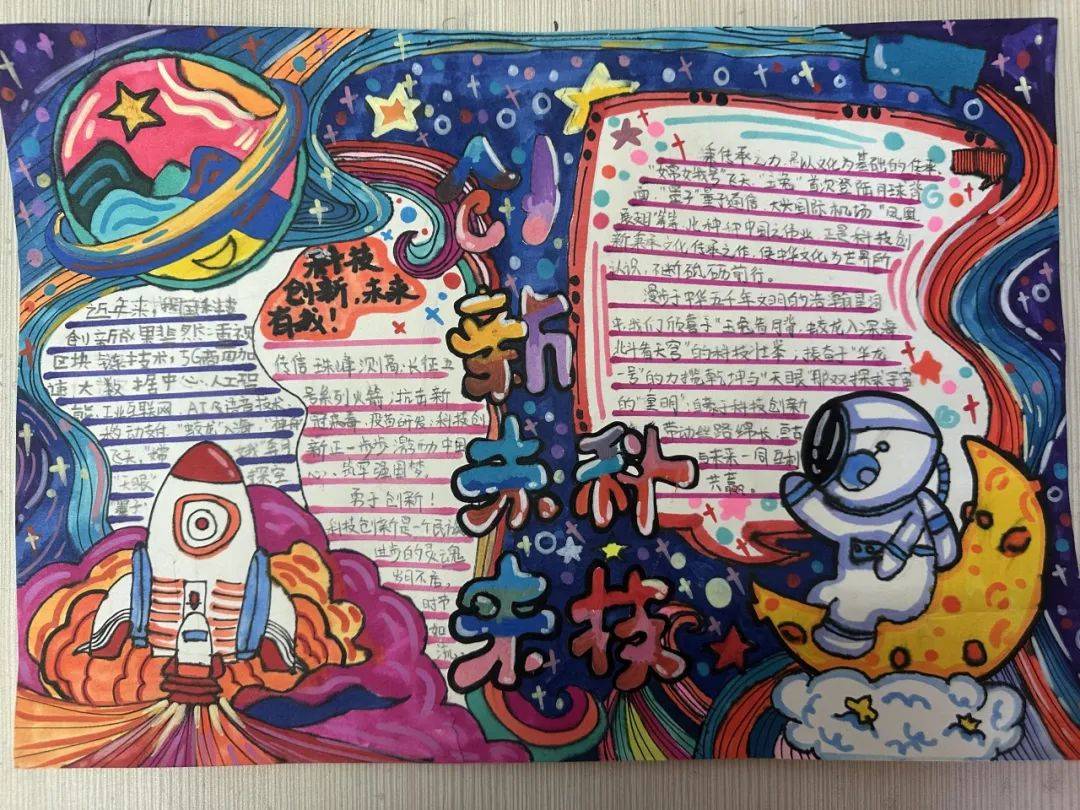 科技
创新,未来
有我!
近年来,我国科技
创新成果斐然:重视
区块链技术;5G商用加
速大数据中心、人工智
能、工业互联网、AI及语音技术
的动力;"蛟龙"入海,"神舟"
飞天,"嫦
"天眼" 探空
"墨子"
传信,珠峰测高;长征
号系列火箭;抗击新
冠病毒,疫苗研发;科技创
新正一步步激动中国
心、筑军强国梦。
勇于创新!
科技创新是一个民族
进步的灵魂
当日不居,
时节
如
流,
创
新
未科
来技
秉传承之力,是以文化为基础的传承,
"嫦娥"飞天,"玉兔"首次登陆月球背
面,"墨子"量子通信,大兴国际机场"凤凰
展翅"等等,此种种中国之伟业,正是科技创
新秉承文化传承之作,使中华文化为世界所
认识,不断砥砺前行。
漫步于中华五千年文明的浩瀚星河
来,我们倾喜于"玉兔"奔月背,蛟龙入深海,
北斗看天穹"的科技壮举,振奋于"华龙
一号"的力揽乾坤与"天眼"那双探求宇宙
的"重明";自表于科技创新
带动丝路绵长,
与未来一同互利
共赢。